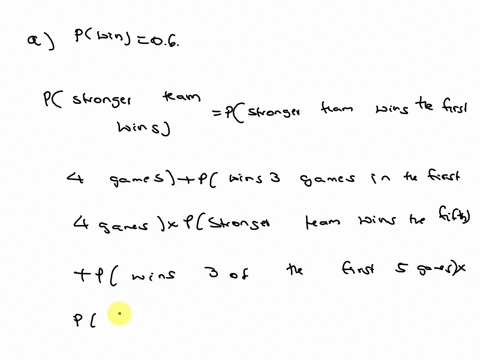 a) P(win)=0.6.
P( stronger team wins) =P( stronger team wins the first
4 games)+P( wins 3 games in the first
4 games)×P(stronger team wins the fifth)
+P( wins 3 of the first 5 games)×
P(